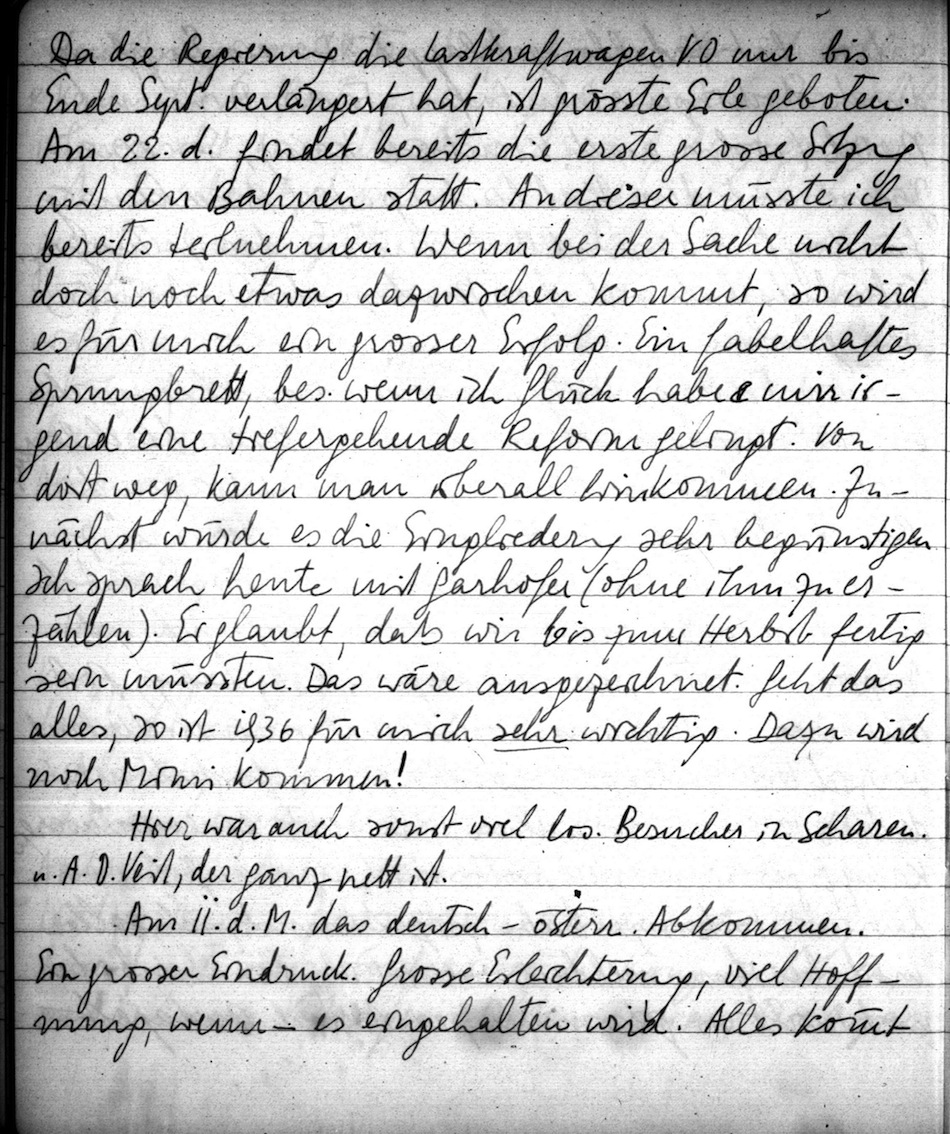 Da die Regierung die Lastkraftwagen VO nur bis
Ende Sept. verlängert hat, ist grösste Eile geboten.
Am 22. d. findet bereits die erste grosse Sitzng
mit den Bahnen statt. An dieser müsste ich
bereits teilnehmen. Wenn bei der Sache nicht
doch noch etwas dazwischen kommt, so wird
es für mich ein grosser Erfolg. Ein fabelhaftes
Sprungbrett, bes. wenn ich Glück habe mir ir-
gend eine tiefergehende Reform gelingt. Von
dort weg, kann man überall hinkommen. Zu-
nächst würde es die Eingliederung sehr begünstigen
Ich sprach heute mit Garhofer (ohne ihm zu er-
zählen). Er glaubt, dass wir bis zum Herbst fertig
sein müssten. Das wäre ausgezeichnet. Geht das
alles, so ist 1936 für mich sehr wichtig. Dazu wird
noch Mimi kommen!
Hier war auch sonst viel los. Besucher in Scharen.
u. A. D. Veit, der ganz nett ist.
Am 11. d. M. das deutsch - österr. Abkommen.
Ein grosser Eindruck. Grosse Erleichterung, viel Hoff-
nung, wenn - es eingehalten wird. Alles kom̄t